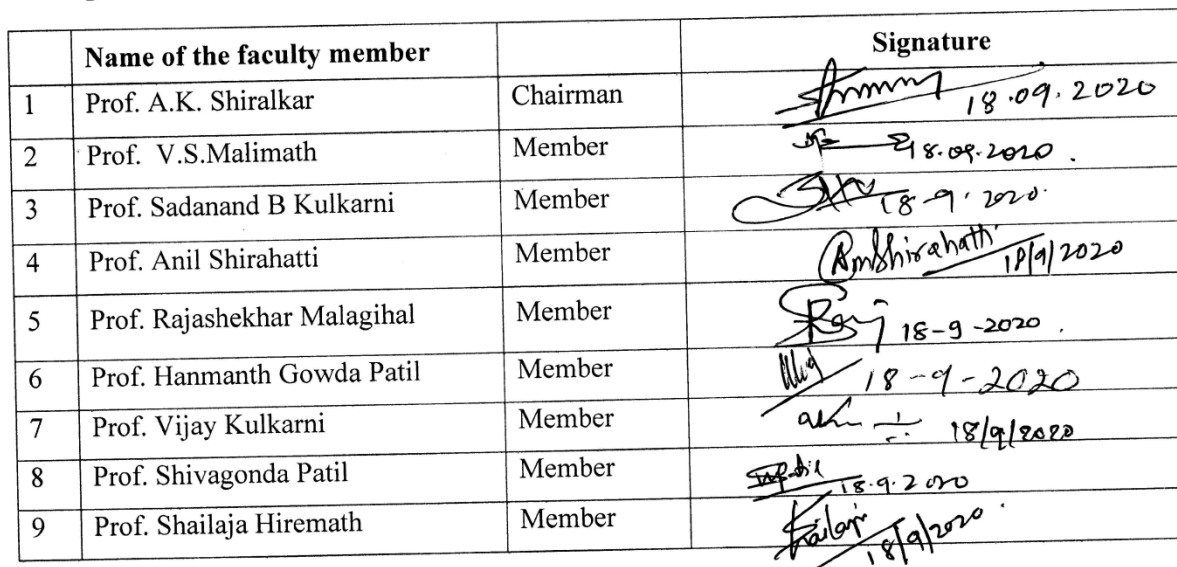 Name of the faculty member Signature
1 Prof. A.K. Shiralkar Chairman 18.09.2020
2 Prof. V.S.Malimath Member 18.09.2020.
3 Prof. Sadanand B Kulkarni Member 18-9-2020.
4 Prof. Anil Shirahatti Member AmShirahatti 18/9/2020
5 Prof. Rajashekhar Malagihal Member 18-9-2020.
6 Prof. Hanmanth Gowda Patil Member 18-9-2020
7 Prof. Vijay Kulkarni Member 18/9/2020
8 Prof. Shivagonda Patil Member 18.9.2020
9 Prof. Shailaja Hiremath Member 18/9/2020.